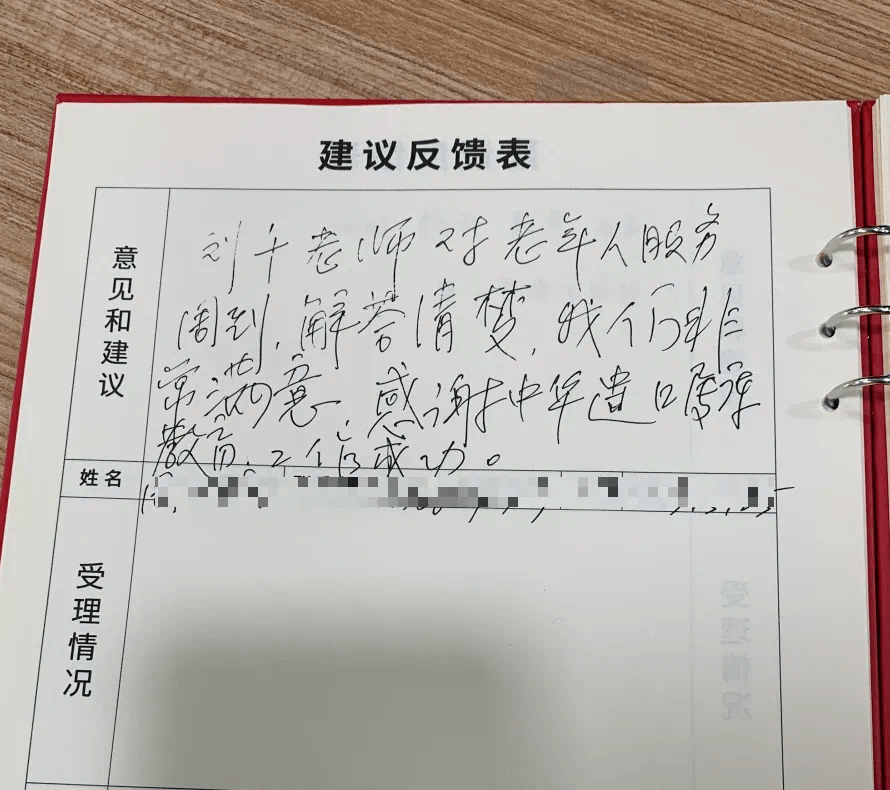 建议反馈表
意见和建议
刘千老师对老年人服务
周到,解答清楚,我们非
常满意,感谢中华遗嘱库
教育,工作成功。
姓名
受理情况